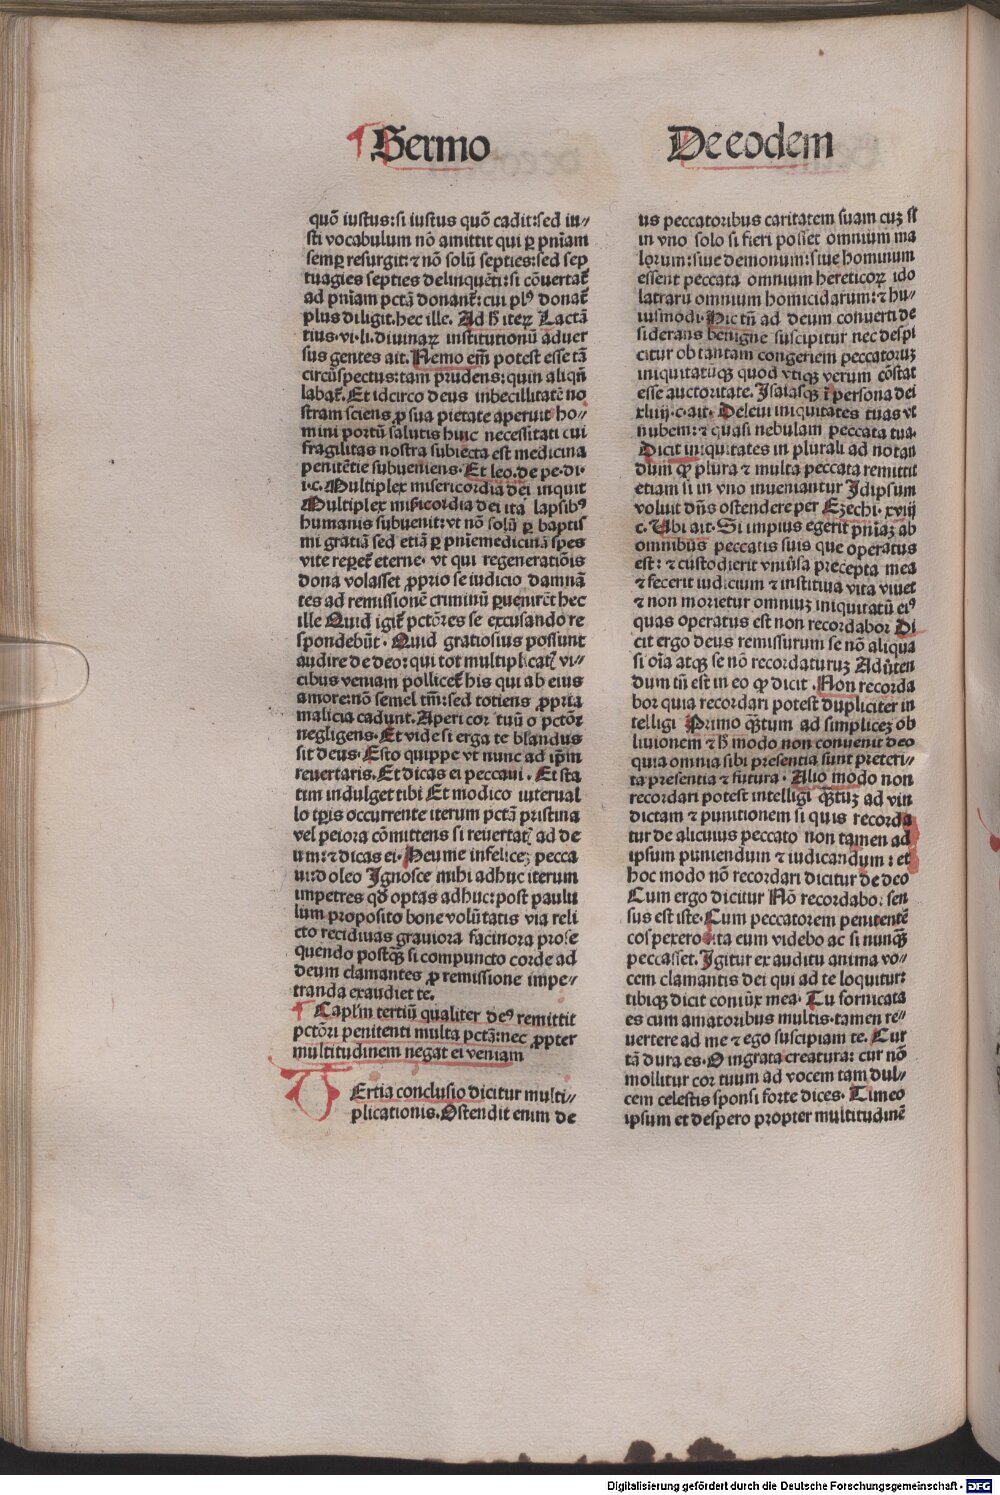 Sermo
De eodem
quō iustus: si iustus quō cadit: sed iu⸗
sti vocabulum nō amittit qui ꝑ pn̄iam
semꝑ resurgit: ⁊ nō solū septies: sed sep
tuagies septies delinquēti: si cōuertat᷑
ad pn̄iam pctā donant᷑: cui plꝰ donat᷑
plus diligit. hec ille. Ad h̄ iteꝝ Lactā
tius. vi. li. diuinaꝝ institutionū aduer
sus gentes ait. Nemo em̄ potest esse tā
circūspectus: tam prudens: quin aliqn̄
labat᷑. Et idcirco deus inbecillitatē no
stram sciens ꝓ sua pietate aperuit ho⸗
mini portū salutis huic necessitati cui
fragilitas nostra subiecta est medicina
penitētie subueniens. Et leo. de pe. di.
i. c. Multiplex misericordia dei inquit
Multiplex mīsicordia dei ita lapsibꝰ
humanis subuenit: vt nō solū ꝑ baptis
mi gratiā sed etiā ꝑ pn̄ie medicinā spes
vite reperet᷑ eterne. vt qui regenerationis
dona volasset ꝓprio se iudicio damnā
tes ad remissionē criminū ꝑuenirēt hec
ille Quid igit᷑ pctōres se excusando re
spondebūt. Quid gratiosius possunt
audire de deo: qui tot multiplicat᷑ vi⸗
cibus veniam pollicet᷑ his qui ab eius
amore: nō semel tm̄: sed totiens ꝓpria
malicia cadunt. Aperi cor tuū o pctōr
negligens. Et vide si erga te blandus
sit deus. Esto quippe vt nunc ad ip̄m
reuertaris. Et dicas ei peccaui. Et sta
tim indulget tibi Et modico interual
lo tꝑis occurrente iterum pctā pristina
vel peiora cōmittens si reuertat᷑ ad de
um: ⁊ dicas ei. Heu me infeliceꝫ pecca
ui: doleo Ignosce mihi adhuc iterum
impetres qd̄ optas adhuc: post paulu
lum proposito bone volūtatis via reli
cto recidiuas grauiora facinora prose
quendo postꝙ̄ si compuncto corde ad
deum clamantes ꝓ remissione impe⸗
tranda exaudiet te.
¶ Capl̄m tertiū qualiter deꝰ remittit
pctōri penitenti multa pctā: nec ꝓpter
multitudinem negat ei veniam
Tertia conclusio dicitur multi⸗
plicationis. Ostendit enim de
us peccatoribus caritatem suam cuꝫ si
in vno solo si fieri posset omnium ma
lorum: siue demonum: siue hominum
essent peccata omnium hereticoꝝ ido
latraru omnium homicidarum: ⁊ hu⸗
iusmodi. Hic tn̄ ad deum conuerti de
siderans benigne suscipitur nec despi
citur ob tantam congeriem peccatoruꝫ
iniquitatūqꝫ quod vtiqꝫ verum cōstat
esse auctoritate. Isaiasqꝫ ī persona dei
xliiij. c. ait. Deleui iniquitates tuas vt
nubem: ⁊ quasi nebulam peccata tua.
Dicit iniquitates in plurali ad notan
dum ꝙ plura ⁊ multa peccata remittit
etiam si in vno inueniantur Idipsum
voluit dn̄s ostendere per Ezechi. xviij
c. Vbi ait. Si impius egerit pn̄iaꝫ ab
omnibus peccatis suis que operatus
est: ⁊ custodierit vniūsa precepta mea
⁊ fecerit iudicium ⁊ institiua vita viuet
⁊ non morietur omniuꝫ iniquitatū eiꝰ
quas operatus est non recordabor Di
cit ergo deus remissurum se nō aliqua
si oīa atqꝫ se nō recordaturuꝫ Aduꝰten
dum tn̄ est in eo ꝙ dicit. Non recorda
bor quia recordari potest dupliciter in
telligi Primo ꝙ̄tum ad simpliceꝫ ob
liuionem ⁊ h̄ modo non conuenit deo
quia omnia sibi presentia sunt preteri⸗
ta presentia ⁊ futura. Alio modo non
recordari potest intelligi ꝙ̄tuꝫ ad vin
dictam ⁊ punitionem si quis recorda
tur de alicuius peccato non tamen ad
ipsum puniendum ⁊ iudicandum: et
hoc modo nō recordari dicitur de deo
Cum ergo dicitur Nō recordabo. sen
sus est iste. Cum peccatorem penitentē
cōspexero ita eum videbo ac si nunꝙ̄
peccasset. Igitur ex auditu anima vo⸗
cem clamantis dei qui ad te loquitur:
tibiqꝫ dicit coniūx mea. Tu fornicata
es cum amatoribus multis. tamen re⸗
uertere ad me ⁊ ego suscipiam te. Cur
tā dura es. O ingrata creatura: cur nō
mollitur cor tuum ad vocem tam dul⸗
cem celestis sponsi forte dices. Timeo
ipsum et despero propter multitudinē
Digitalisierung gefördert durch die Deutsche Forschungsgemeinschaft - DFG